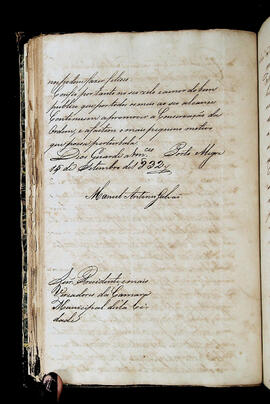 nos podem fazer felices.
Confio por tanto no seo zelo e amor do bem
publico que por todos os meios ao seo alcance
Continuem a promover a Conservação da
Ordem, e afastem o mais pequeno motivo
que possa perturbala.
Deos Guarde a Vm.ces Porto Alegre
14 de Setembro de 1832
Manoel Antonio Galvão
Snr. Presidente e mais
Vereadores da Camara
Municipal desta Ci-
dade